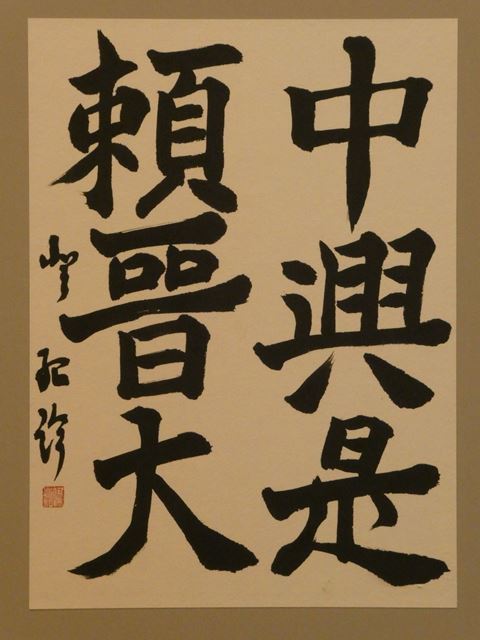 中興是
頼晉大